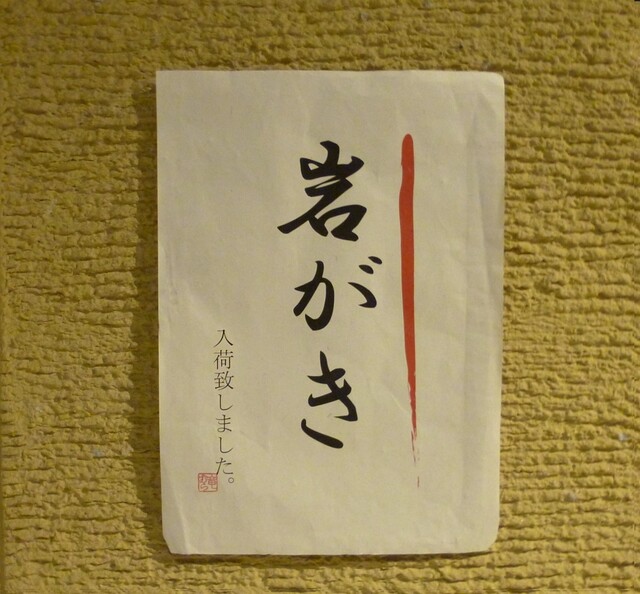 岩がき
入荷致しました。